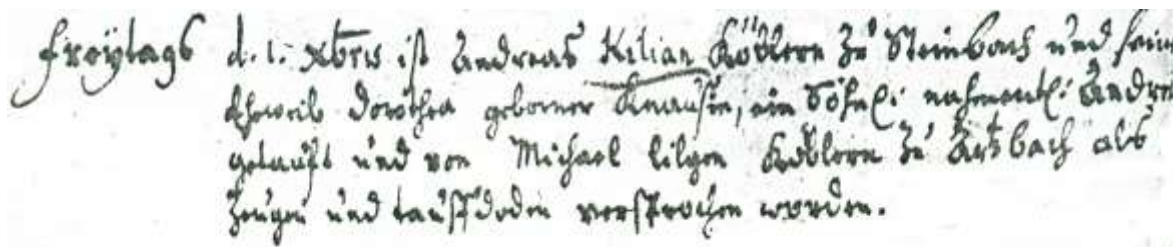 Freÿtags d. 1. Xbris ist Andreas Kilian Köblern zu Steinbach und sein
Eheweib Dorothea geborner Knausin, ein Söhnl: nahmentl: Andre
getauft und von Michael Lilgen Köblern zu Artzbach als
Zeugen und tauffdoden versprochen worden.